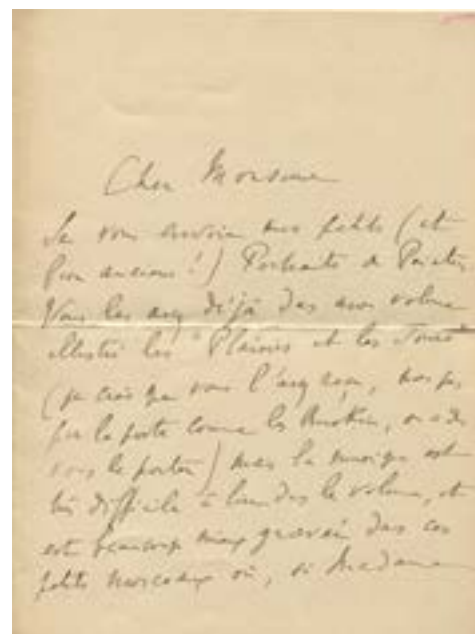 Cher Monsieur
Je vous envoie mes petits (et
bien anciens !) Portraits de Peintres
Vous les avez déjà dans mon volume
illustré les "Plaisirs et les Jours"
(je crois que vous l'avez reçu, non pas
par la poste comme les Ruskin, on a dû
vous le porter) mais la musique est
très difficile à lire dans le volume, et
est beaucoup mieux gravée dans ces
petits morceaux où, si Madame